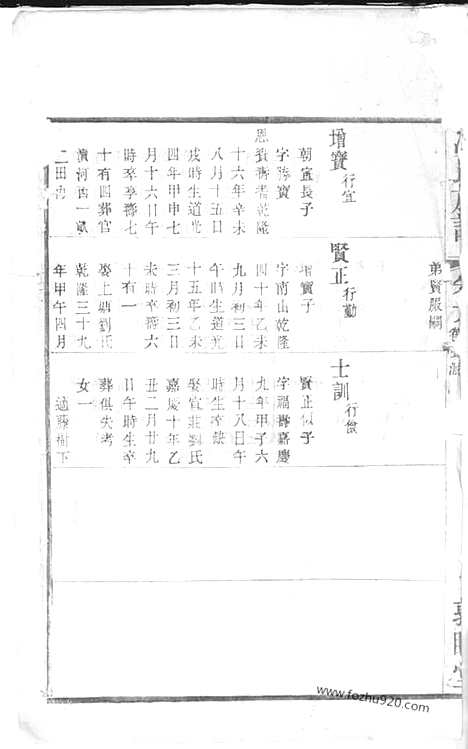 弟賢嚴嗣
增寶行宜
朝宣長子
字勝寶
恩賚壽耆乾隆
十六年辛未
八月十五日
戌時生道光
四年甲申七
月十六日午
時卒享壽七
十有四葬官
濱河酉一甽
二田
賢正行勤
增寶子
字南山乾隆
四十年乙未
九月初三日
午時生道光
十五年乙未
三月初三日
未時卒壽六
十有一
娶上鼎劉氏
乾隆三十九
年甲午四月
士訓行儉
賢正似子
字福壽嘉慶
九年甲子六
月十八日午
時生卒缺
娶宣莊劉氏
嘉慶十年乙
丑二月廿九
日午時生卒
葬俱失考
女一
適藤樹下
www.fozhu920.com